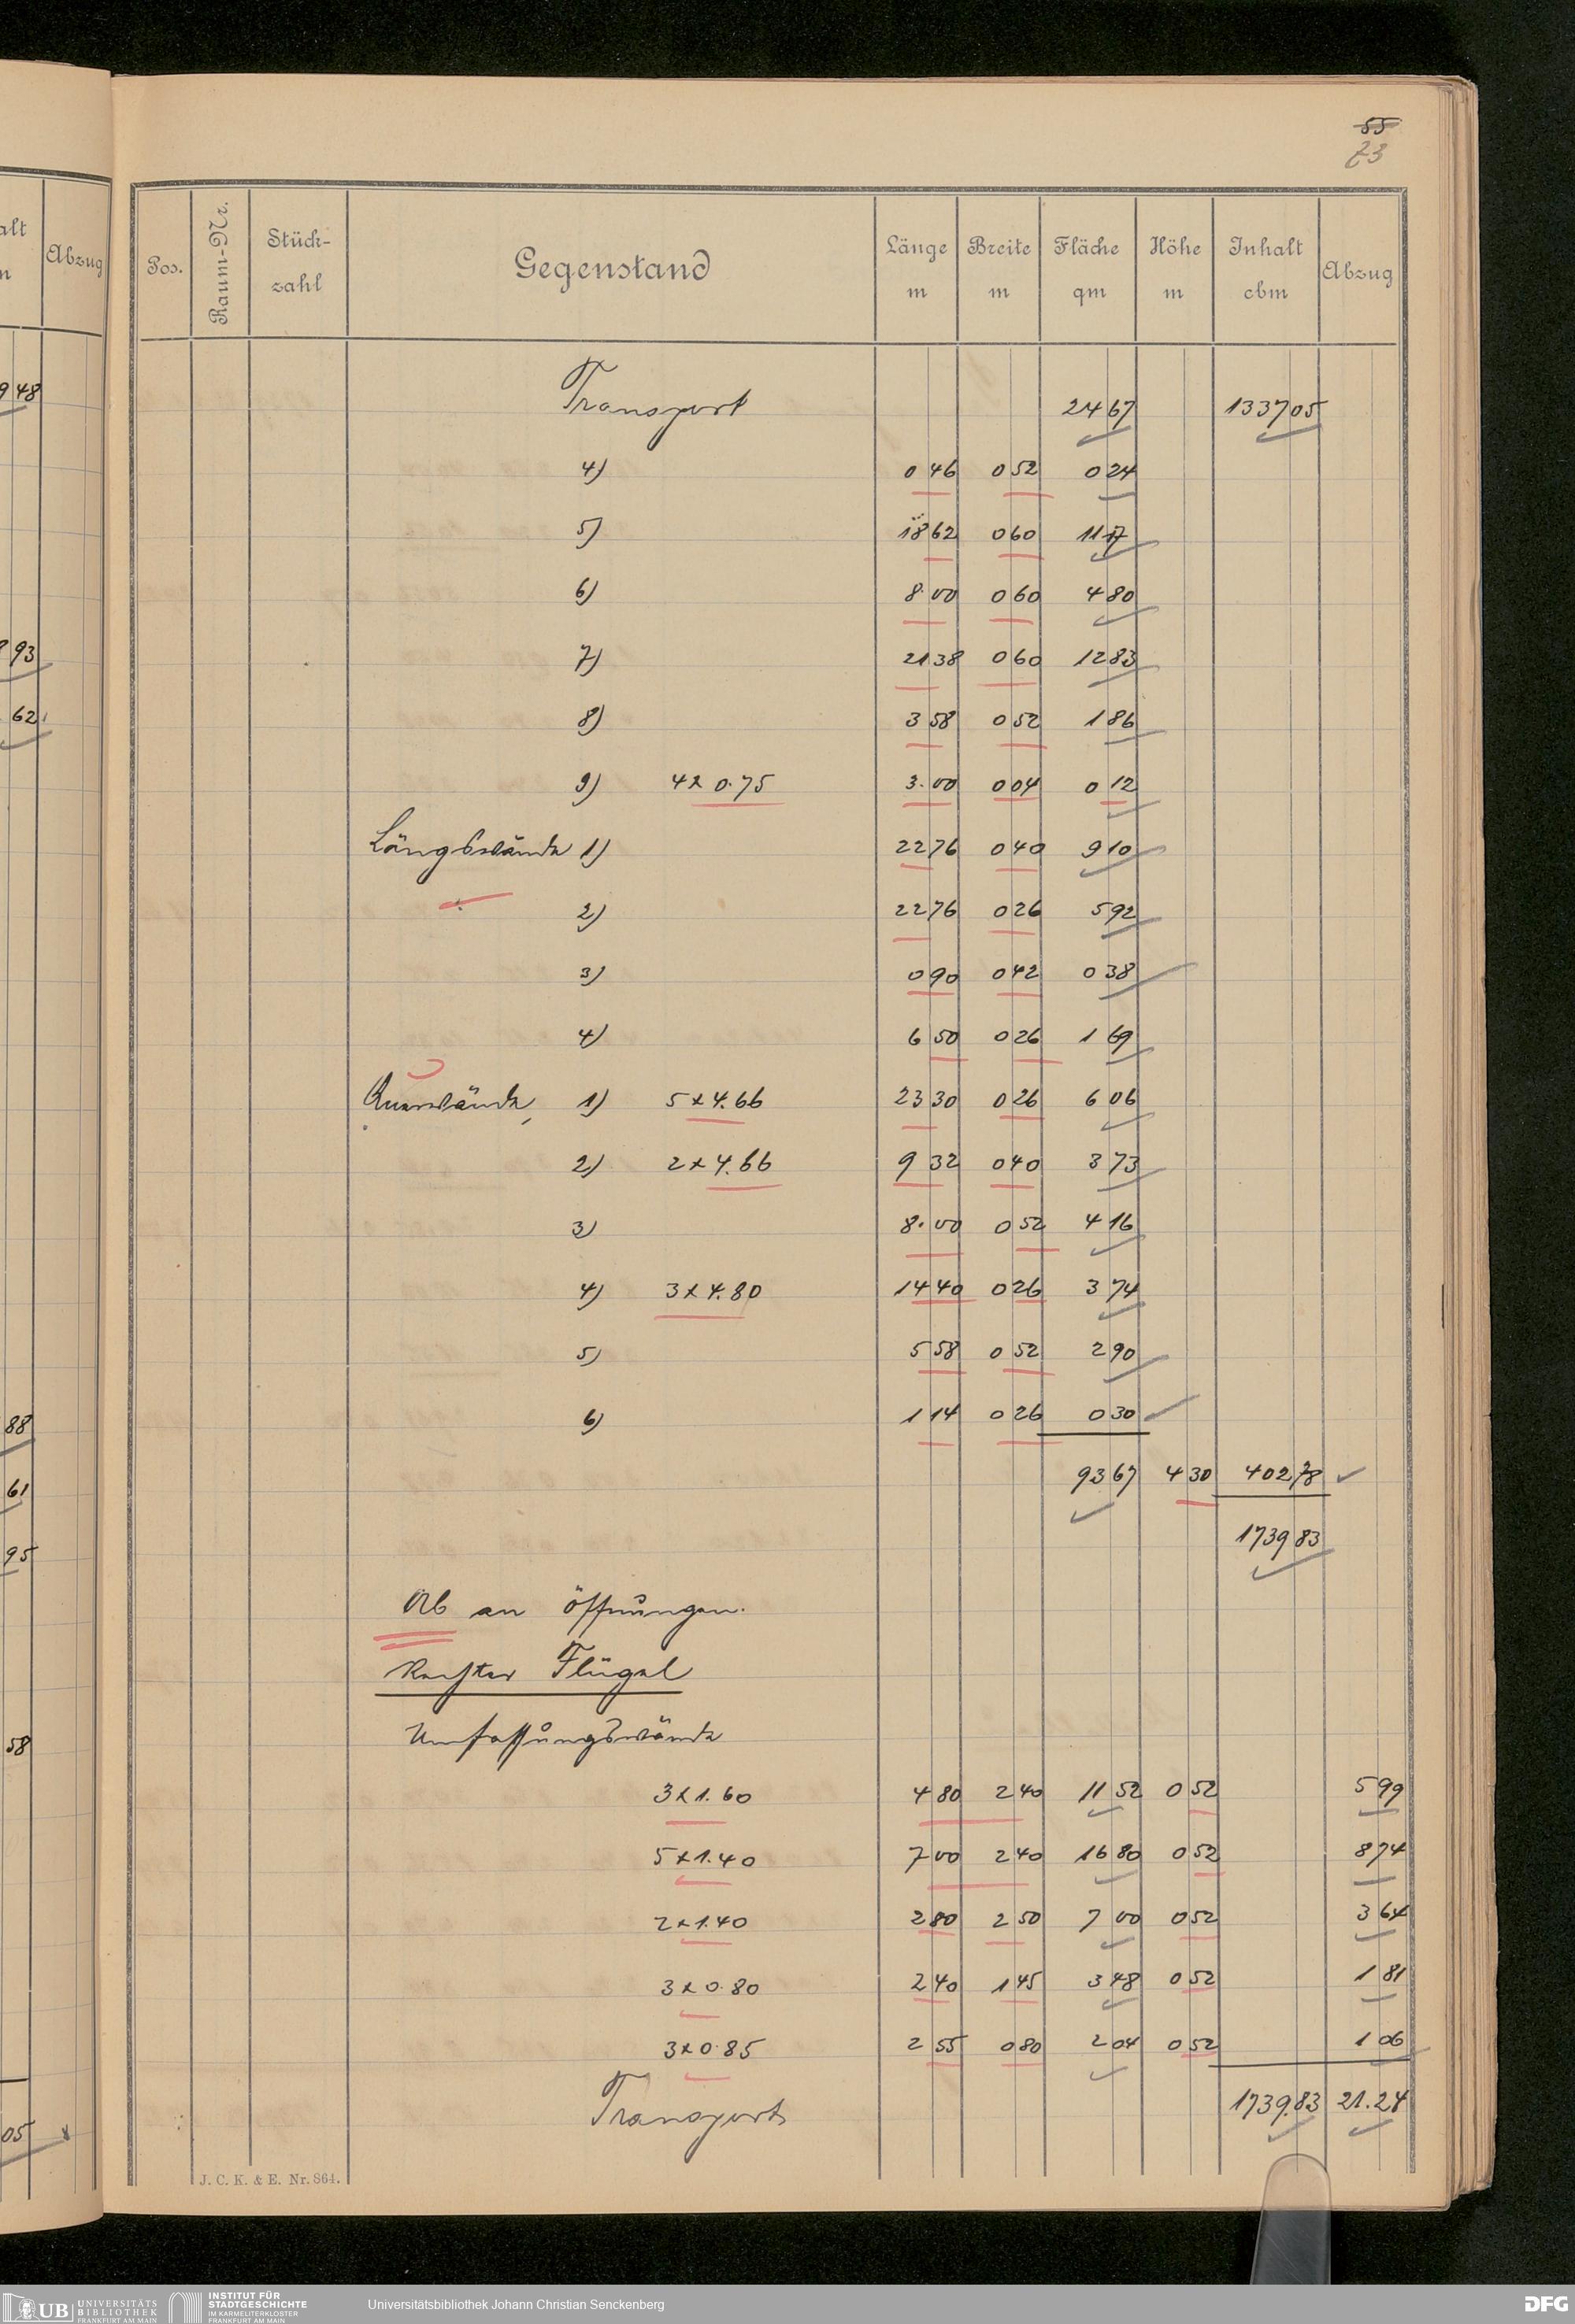 55
73
alt
m
Abzug
Pos.
Raum-Nr.
Stück-
zahl
Gegenstand
Länge
m
Breite
m
Fläche
qm
Höhe
m
Inhalt
cbm
Abzug
Transport 24 67 1337 05
4) 0 46 0 52 0 24
5) 18 62 0 60 11 17
6) 8.00 0 60 4 80
7) 21 38 0 60 12 83
8) 3 58 0 52 1 86
9) 4 x 0.75 3.00 0 04 0 12
Längswände 1) 22 76 0 40 9 10
2) 22 76 0 26 5 92
3) 0 90 0 42 0 38
4) 6 50 0 26 1 69
Querwände, 1) 5 x 4.66 23 30 0 26 6 06
2) 2 x 4.66 9 32 0 40 3 73
3) 8.00 0 52 4 16
4) 3 x 4.80 14 40 0 26 3 74
5) 5 58 0 52 2 90
6) 1 14 0 26 0 30
93 67 4 30 402 78
1739 83
Ab an Öffnungen.
Rechter Flügel
Umfassungswände
3 x 1.60 4 80 2 40 11 52 0 52 5 99
5 x 1.40 7 00 2 40 16 80 0 52 8 74
2 x 1.40 2 80 2 50 7 00 0 52 3 64
3 x 0.80 2 40 1 45 3 48 0 52 1 81
3 x 0.85 2 55 0 80 2 04 0 52 1 06
Transport 1739.83 21.24
J. C. K. & E. Nr. 864.
9 48
93
62
88
61
95
58
05
UB UNIVERSITÄTS BIBLIOTHEK FRANKFURT AM MAIN
INSTITUT FÜR STADTGESCHICHTE IM KARMELITERKLOSTER FRANKFURT AM MAIN
Universitätsbibliothek Johann Christian Senckenberg
DFG